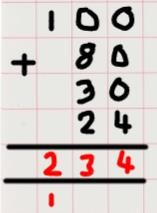 100
+ 80
30
24
234
1